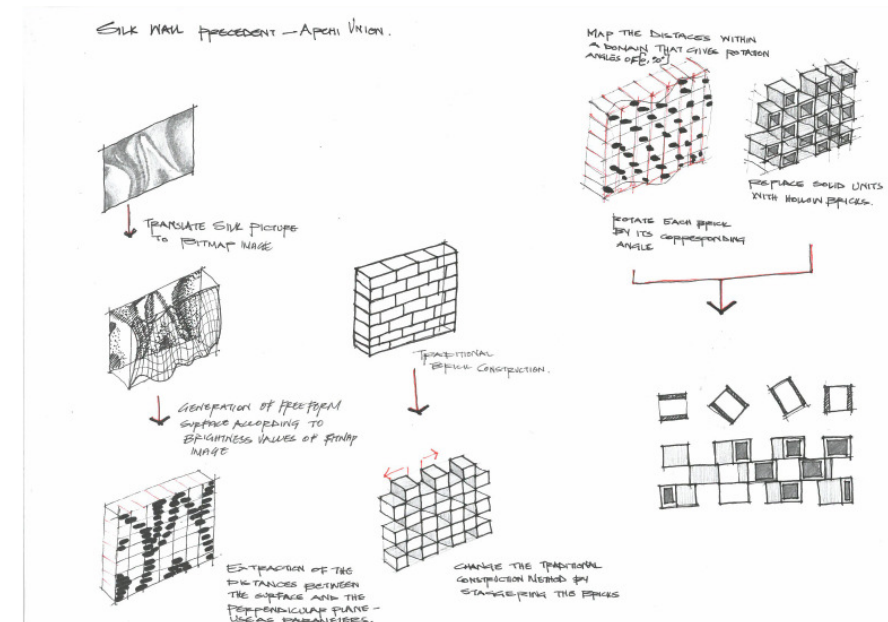 SILK WALL PRECEDENT – ARCHI UNION.
TRANSLATE SILK PICTURE
TO BITMAP IMAGE
GENERATION OF FREEFORM
SURFACE ACCORDING TO
BRIGHTNESS VALUES OF BITMAP
IMAGE
EXTRACTION OF THE
DISTANCES BETWEEN
THE SURFACE AND THE
PERPENDICULAR PLANE –
USE AS PARAMETERS.
TRADITIONAL
BRICK CONSTRUCTION.
CHANGE THE TRADITIONAL
CONSTRUCTION METHOD BY
STAGGERING THE BRICKS
MAP THE DISTACES WITHIN
A DOMAIN THAT GIVES ROTATION
ANGLES OF
ROTATE EACH BRICK
BY ITS CORRESPONDING
ANGLE
REPLACE SOLID UNITS
WITH HOLLOW BRICKS.